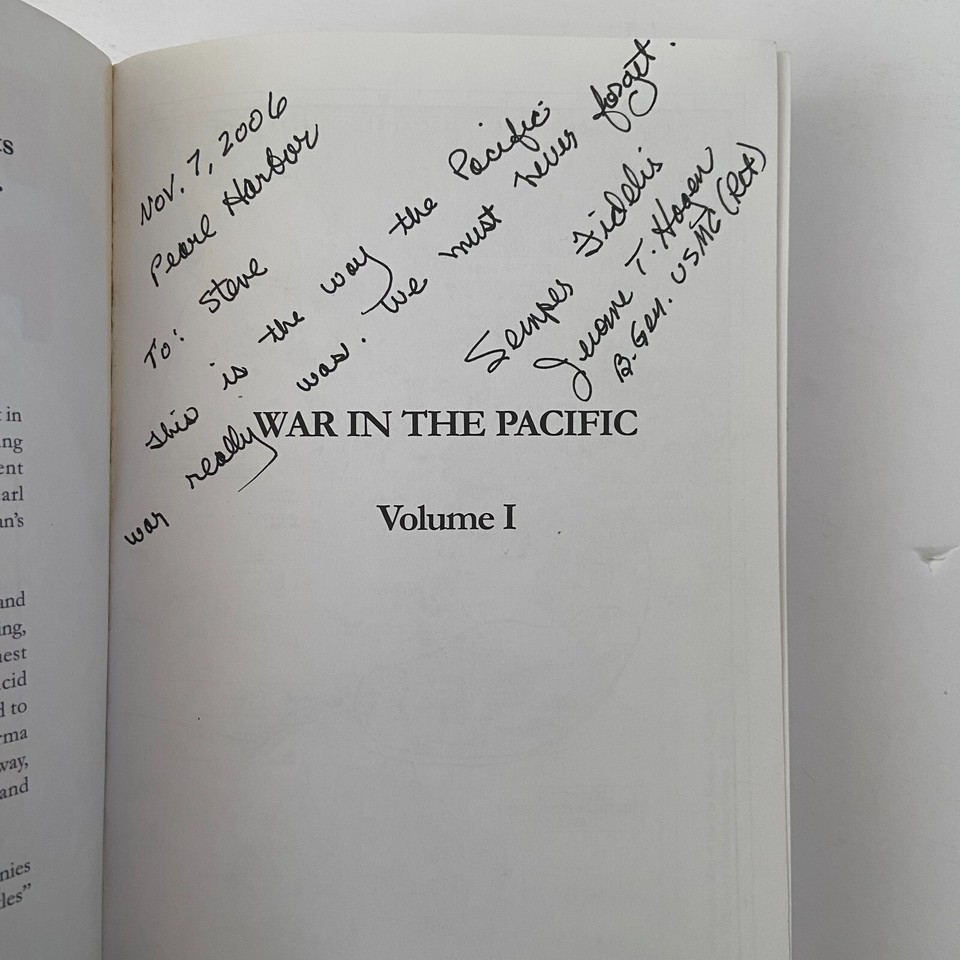 ts
in
ng
ent
arl
an's
and
ing,
uest
cid
d to
rma
way,
and
nies
dles”
Nov. 7, 2006
Pearl Harbor
To: Steve
This is the way the Pacific
war really was. We must never forget.
Semper Fidelis
Jerome T. Hagen
B. Gen. USMC (Ret)
WAR IN THE PACIFIC
Volume I